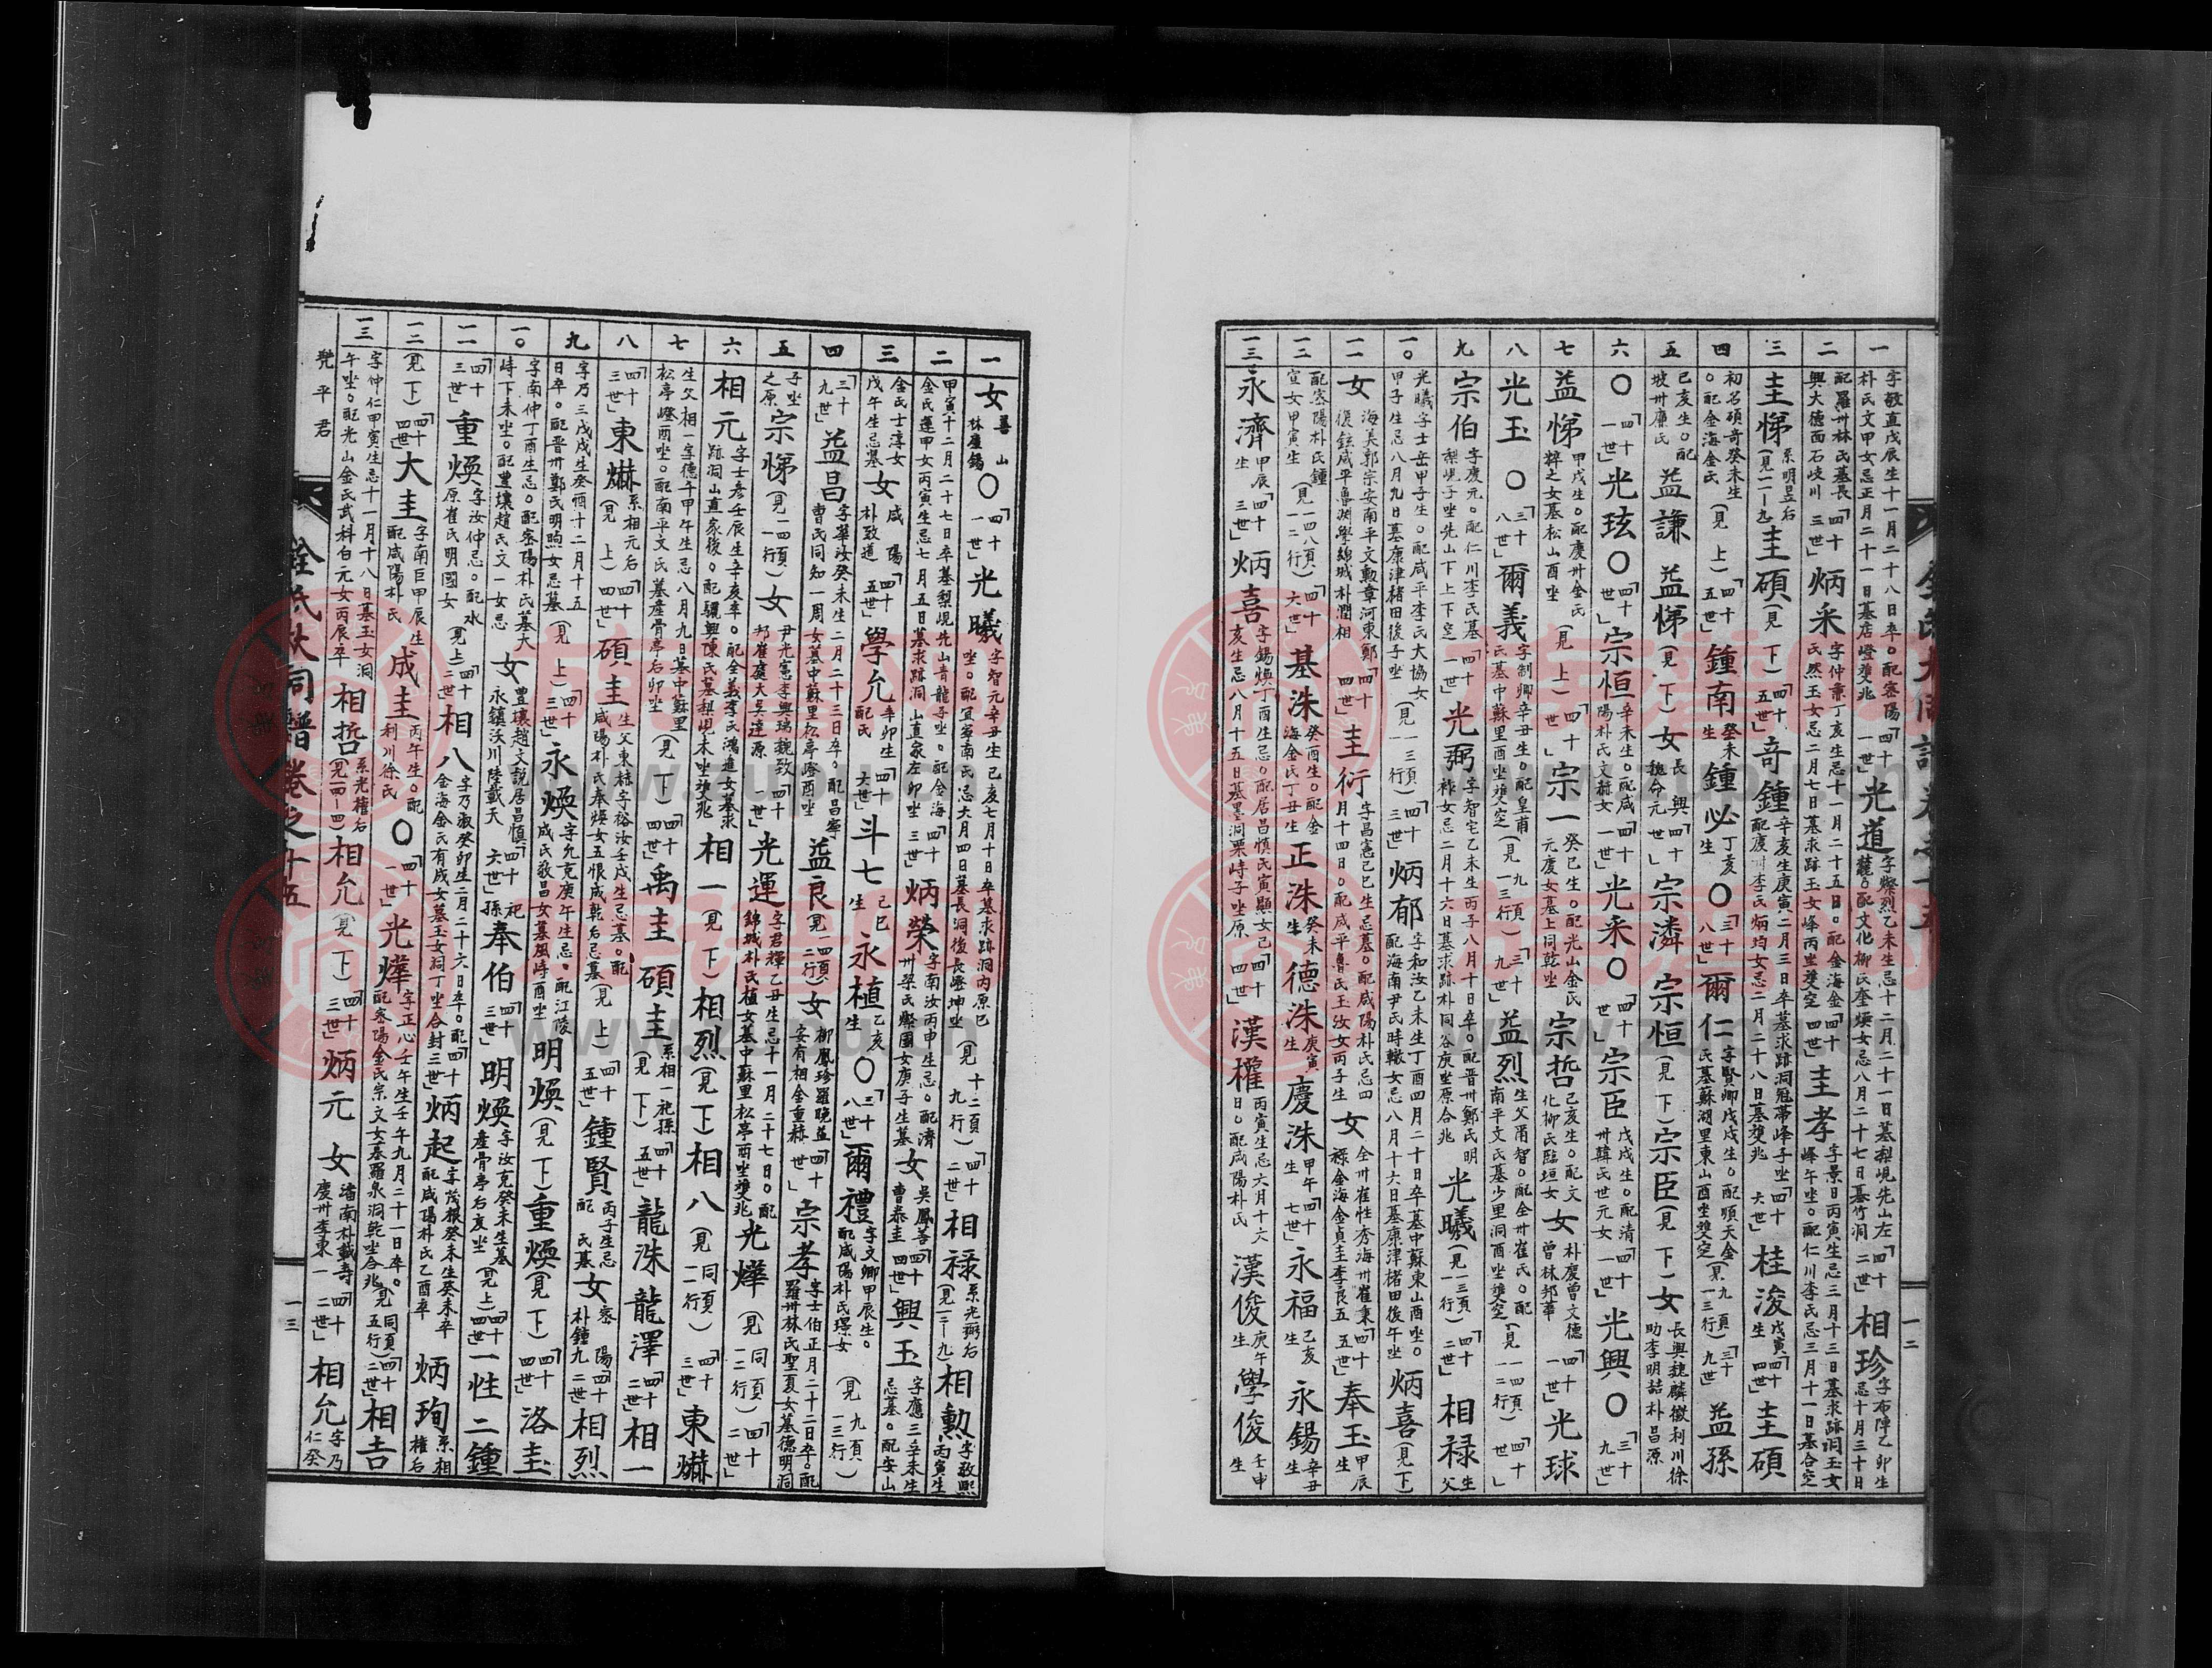 一
字敬直戊辰生十一月二十八日卒。配密陽
朴氏文甲女忌正月二十一日墓店嶝雙兆
「四十一世」光道
字燦烈乙未生忌十二月二十一日墓梨峴先山左
麓。配文化柳氏奎煥女忌八月二十七日墓竹洞
「四十二世」相珍
字布陣乙卯生
忌十月三十日
二
配羅州林氏墓長
興大德面石歧川
「四十三世」炳采
字仲兼丁亥生忌十一月二十五日。配金海金
氏然玉女忌二月七日墓求跡玉女峰丙坐雙空
「四十四世」圭孝
字景日丙寅生忌三月十三日墓求跡洞玉女
峰午坐。配仁川李氏忌三月十一日墓合空
三
圭悌
系明昱后
(見一一-九)
圭碩(見下)
「四十五世」奇鍾
辛亥生庚寅二月三日卒墓求跡洞冠帶峰子坐
配慶州李氏炳均女忌二月二十八日墓雙兆
「四十六世」桂浚
戊寅生
「四十四世」圭碩
四
初名碩奇癸未生
。配金海金氏
(見上)
「四十五世」鍾南
癸未生
鍾必
丁亥生
〇「三十八世」爾仁
字賢卿戊戌生。配順天金
氏墓蘇湖里東山酉坐雙空
(見九頁一三行)
「三十九世」益孫
五
己亥生。配
坡州廉氏
益謙 益悌(見下)女
長興
魏命元
「四十世」宗潾 宗恒(見下)宗臣(見下)女
長興魏麟徵利川徐
助李明喆朴昌源
六
〇「四十一世」光玹〇「四十世」宗恒
辛未生。配咸
陽朴氏文赫女
「四十一世」光采〇「四十世」宗臣
戊戌生。配清
州韓氏世元女
「四十一世」光興〇「三十九世」
七
益悌
甲戌生。配慶州金氏
粹之女墓松山酉坐
(見上)
「四十世」宗一
癸巳生。配光山金氏
元慶女墓上同乾坐
宗哲
己亥生。配文
化柳氏臨垣女
女
朴慶曾文德
曾林邦華
「四十一世」光球
八
光玉〇「三十八世」爾義
字制卿辛丑生。配皇甫
氏墓中蘇里酉坐雙空
(見九頁一三行)
「三十九世」益烈
生父爾智。配全州崔氏。配
南平文氏墓少里洞酉坐雙空
(見一四頁一二行)
「四十世」
九
宗伯
字慶元。配仁川李氏墓
梨峴子坐先山下上下空
「四十一世」光弼
字智宅乙未生丙子八月十日卒。配晋州鄭氏明
祿女忌二月十六日墓求跡朴同谷庚坐原合兆
光曦(見一三頁一行)
「四十二世」相祿
生父
一〇
光曦字士岳甲子生。配咸平李氏大協女
甲子生忌八月九日墓康津豬田後子坐
(見一一三頁)
「四十三世」炳郁
字和汝乙未生丁酉四月二十日卒墓中蘇東山酉坐。
配海南尹氏時轍女忌八月十六日墓康津楮田後午坐
炳喜(見下)
一一
女
海美郭宗安南平文勳章河東鄭
復鉉咸平魯淵學綿城朴潤相
「四十四世」圭衍
字昌憲己巳生忌墓。配咸陽朴氏忌四
月十四日。配咸平魯氏玉汝女丙子生
女
全州崔性秀海州崔秉
祿金海金貞圭李良五
「四十五世」奉玉
甲辰生
一二
配密陽朴氏鍾
宣女甲寅生
(見一四八頁一二行)
「四十六世」基洙
癸酉生。配金
海金氏丁丑生
正洙
癸未生
德洙
庚寅生
慶洙
甲午生
「四十七世」永福
己亥生
永錫
辛丑生
一三
永濟
甲辰生
「四十三世」炳喜
字錫煥丁酉生忌。配居昌慎氏寅顯女己
亥生忌八月十五日墓墨洞栗峙子坐原
「四十四世」漢權
丙寅生忌六月十六
日。配咸陽朴氏
漢俊
庚午生
學俊
壬申生
一二
一
女
善山
林慶錫
〇「四十一世」光曦
字智元辛丑生己亥七月十日卒墓求跡洞內原巳
坐。配宜寧南氏忌六月四日墓長洞後長嶝坤坐
(見十二頁九行)
「四十二世」相祿
系光弼后
(見一二-九)
相勳
字敬熙
丙寅生
二
甲寅十二月二十七日卒墓梨峴先山青龍子坐。配金海
金氏運甲女丙寅生忌七月五日墓求跡洞山直家左卯坐
「四十三世」炳榮
字南汝丙申生忌。配濟
州梁氏燦園女庚子生墓
女
吳鳳善
曹泰圭
「四十四世」興玉
字應三辛未生
忌墓。配安山
三
金氏士淳女
戊午生忌墓
女
咸陽
朴致道
「四十五世」學允
辛卯生
配氏
「四十六世」斗七
己巳生
永植
乙亥生
〇「三十八世」爾禮
字文卿甲辰生。
配咸陽朴氏璟女
(見九頁一三行)
四
「三十九世」益昌
字華汝癸未生二月二十三日卒。配昌寧
曹氏同知一周女墓中蘇里松亭嶝酉坐
益良(見一四頁二行)女
柳鳳珍羅晚益
安有相金重赫
「四十世」宗孝
字士伯正月二十二日卒。配
羅州林氏聖夏女墓德明洞
五
子坐
之原
宗悌(見一四頁一行)女
尹光憲李興瑞魏致
邦崔慶大吳達源
「四十一世」光運
字君輝乙丑生忌十一月二十七日。配
錦城朴氏植女墓中蘇里松亭酉坐雙兆
光燁(見同頁一二行)「四十二世」
六
相元
字士彥壬辰生辛亥卒。配全義李氏鴻進女墓求
跡洞山直家後。配驪興陳氏墓梨峴未坐雙兆
相一(見下)相烈(見下)相八(見同頁一一行)「四十三世」東爀
七
生父相一字德午甲午生忌八月九日墓中蘇里
松亭嶝酉坐。配南平文氏墓產骨亭后卯坐
(見下)
「四十四世」禹圭 碩圭
系相一祀孫
(見下)
「四十五世」龍洙 龍澤「四十二世」相一
八
「四十三世」東爀
系相元后
(見上)
「四十四世」碩圭
生父東赫字裕汝壬戌生忌墓。配
咸陽朴氏奉煥女五恨咸乾后忌墓
(見上)
「四十五世」鍾賢
丙子生忌
配氏墓
女
密陽
朴鍾九
「四十二世」相烈
九
字乃三戊戌生癸酉十二月十五
日卒。配晋州鄭氏明煦女忌墓
(見上)
「四十三世」永煥
字允克庚午生忌。配江陵
咸氏敬昌女墓風峙酉坐
明煥(見下)重煥(見下)「四十四世」洛圭
一〇
字南仲丁酉生忌。配密陽朴氏墓大
峙下未坐。配豊壤趙氏文一女忌
女
豊壤趙文說居昌慎
永鎮沃川陸載天
「四十六世」祀孫奉伯
「四十三世」明煥
字汝克癸未生墓
產骨亭后亥坐
(見上)
「四十四世」一性 二鍾
一一
「四十三世」重煥
字汝仲忌。配水
原崔氏明國女
(見上)
「四十二世」相八
字乃淑癸卯生二月二十六日卒。配
金海金氏有成女墓玉女洞丁坐合封
「四十三世」炳起
字茂根癸未生癸未卒
配咸陽朴氏乙酉卒
炳珣
系相
權后
一二
(見下)
「四十四世」大圭
字南巨甲辰生
配咸陽朴氏
成圭
丙午生。配
利川徐氏
〇「四十一世」光燁
字正心壬午生壬午九月二十一日卒。
配密陽金氏宗文女墓羅泉洞乾坐合兆
(見同頁五行)
「四十二世」相吉
一三
字仲仁甲寅生忌十一月十八日墓玉女洞
午坐。配光山金氏武科白元女丙辰卒
相哲
系光權后
(見一四-四)
相允(見下)「四十三世」炳元 女
潘南朴載壽
慶州李東一
「四十二世」相允
字乃
仁癸
兜平君
金氏大同譜卷之十五
一三